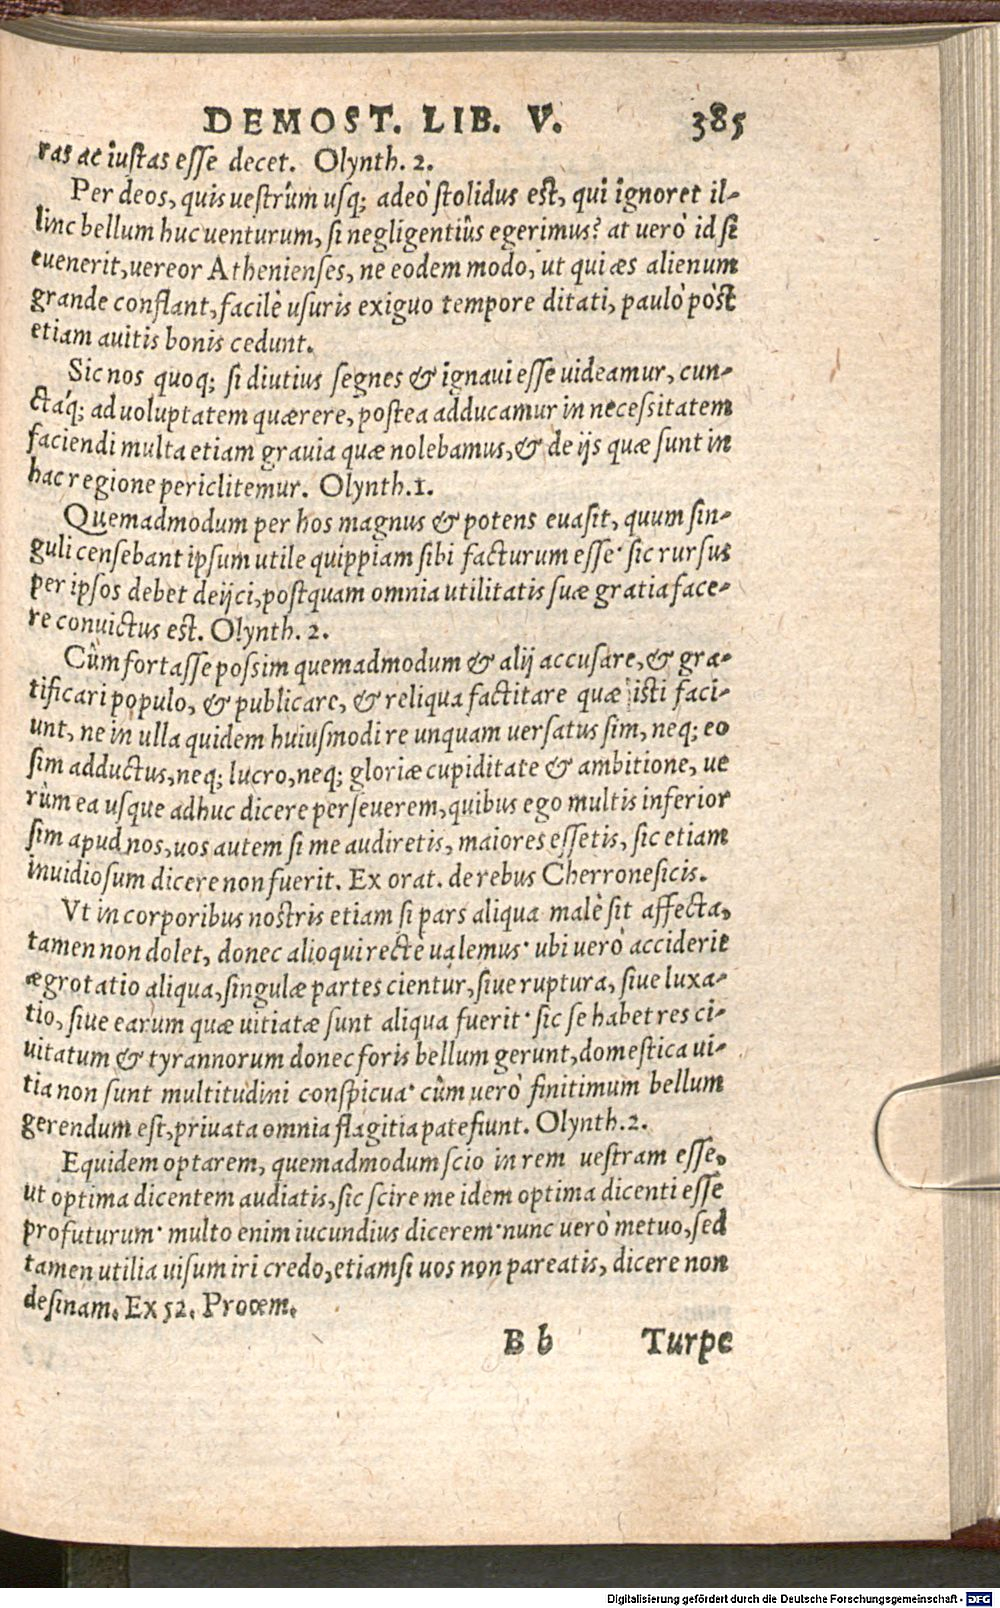 DEMOST. LIB. V. 385
ras ac iustas esse decet. Olynth. 2.
Per deos, quis uestrûm usq; adeò stolidus est, qui ignoret il-
linc bellum huc uenturum, si negligentiùs egerimus? at uerò id si
euenerit, uereor Athenienses, ne eodem modo, ut qui æs alienum
grande conflant, facilè usuris exiguo tempore ditati, paulò pòst
etiam auitis bonis cedunt.
Sic nos quoq; si diutius segnes & ignaui esse uideamur, cun-
ctáq; ad uoluptatem quærere, postea adducamur in necessitatem
faciendi multa etiam grauia quæ nolebamus, & de ijs quæ sunt in
hac regione periclitemur. Olynth. 1.
Quemadmodum per hos magnus & potens euasit, quum sin-
guli censebant ipsum utile quippiam sibi facturum esse· sic rursus
per ipsos debet deijci, postquam omnia utilitatis suæ gratia face-
re conuictus est. Olynth. 2.
Cûm fortasse possim quemadmodum & alij accusare, & gra-
tificari populo, & publicare, & reliqua factitare quæ isti faci-
unt, ne in ulla quidem huiusmodi re unquam uersatus sim, neq; eo
sim adductus, neq; lucro, neq; gloriæ cupiditate & ambitione, ue
rùm ea usque adhuc dicere perseuerem, quibus ego multis inferior
sim apud nos, uos autem si me audiretis, maiores essetis, sic etiam
inuidiosum dicere non fuerit. Ex orat. de rebus Cherronesicis.
Vt in corporibus nostris etiam si pars aliqua malè sit affecta,
tamen non dolet, donec alioqui rectè ualemus· ubi uerò acciderit
ægrotatio aliqua, singulæ partes cientur, siue ruptura, siue luxa-
tio, siue earum quæ uitiatæ sunt aliqua fuerit· sic se habet res ci-
uitatum & tyrannorum donec foris bellum gerunt, domestica ui-
tia non sunt multitudini conspicua· cûm uerò finitimum bellum
gerendum est, priuata omnia flagitia patefiunt. Olynth. 2.
Equidem optarem, quemadmodum scio in rem uestram esse,
ut optima dicentem audiatis, sic scire me idem optima dicenti esse
profuturum· multo enim iucundius dicerem· nunc uerò metuo, sed
tamen utilia uisum iri credo, etiamsi uos non pareatis, dicere non
desinam. Ex 52. Proœm.
B b Turpe
Digitalisierung gefördert durch die Deutsche Forschungsgemeinschaft - DFG